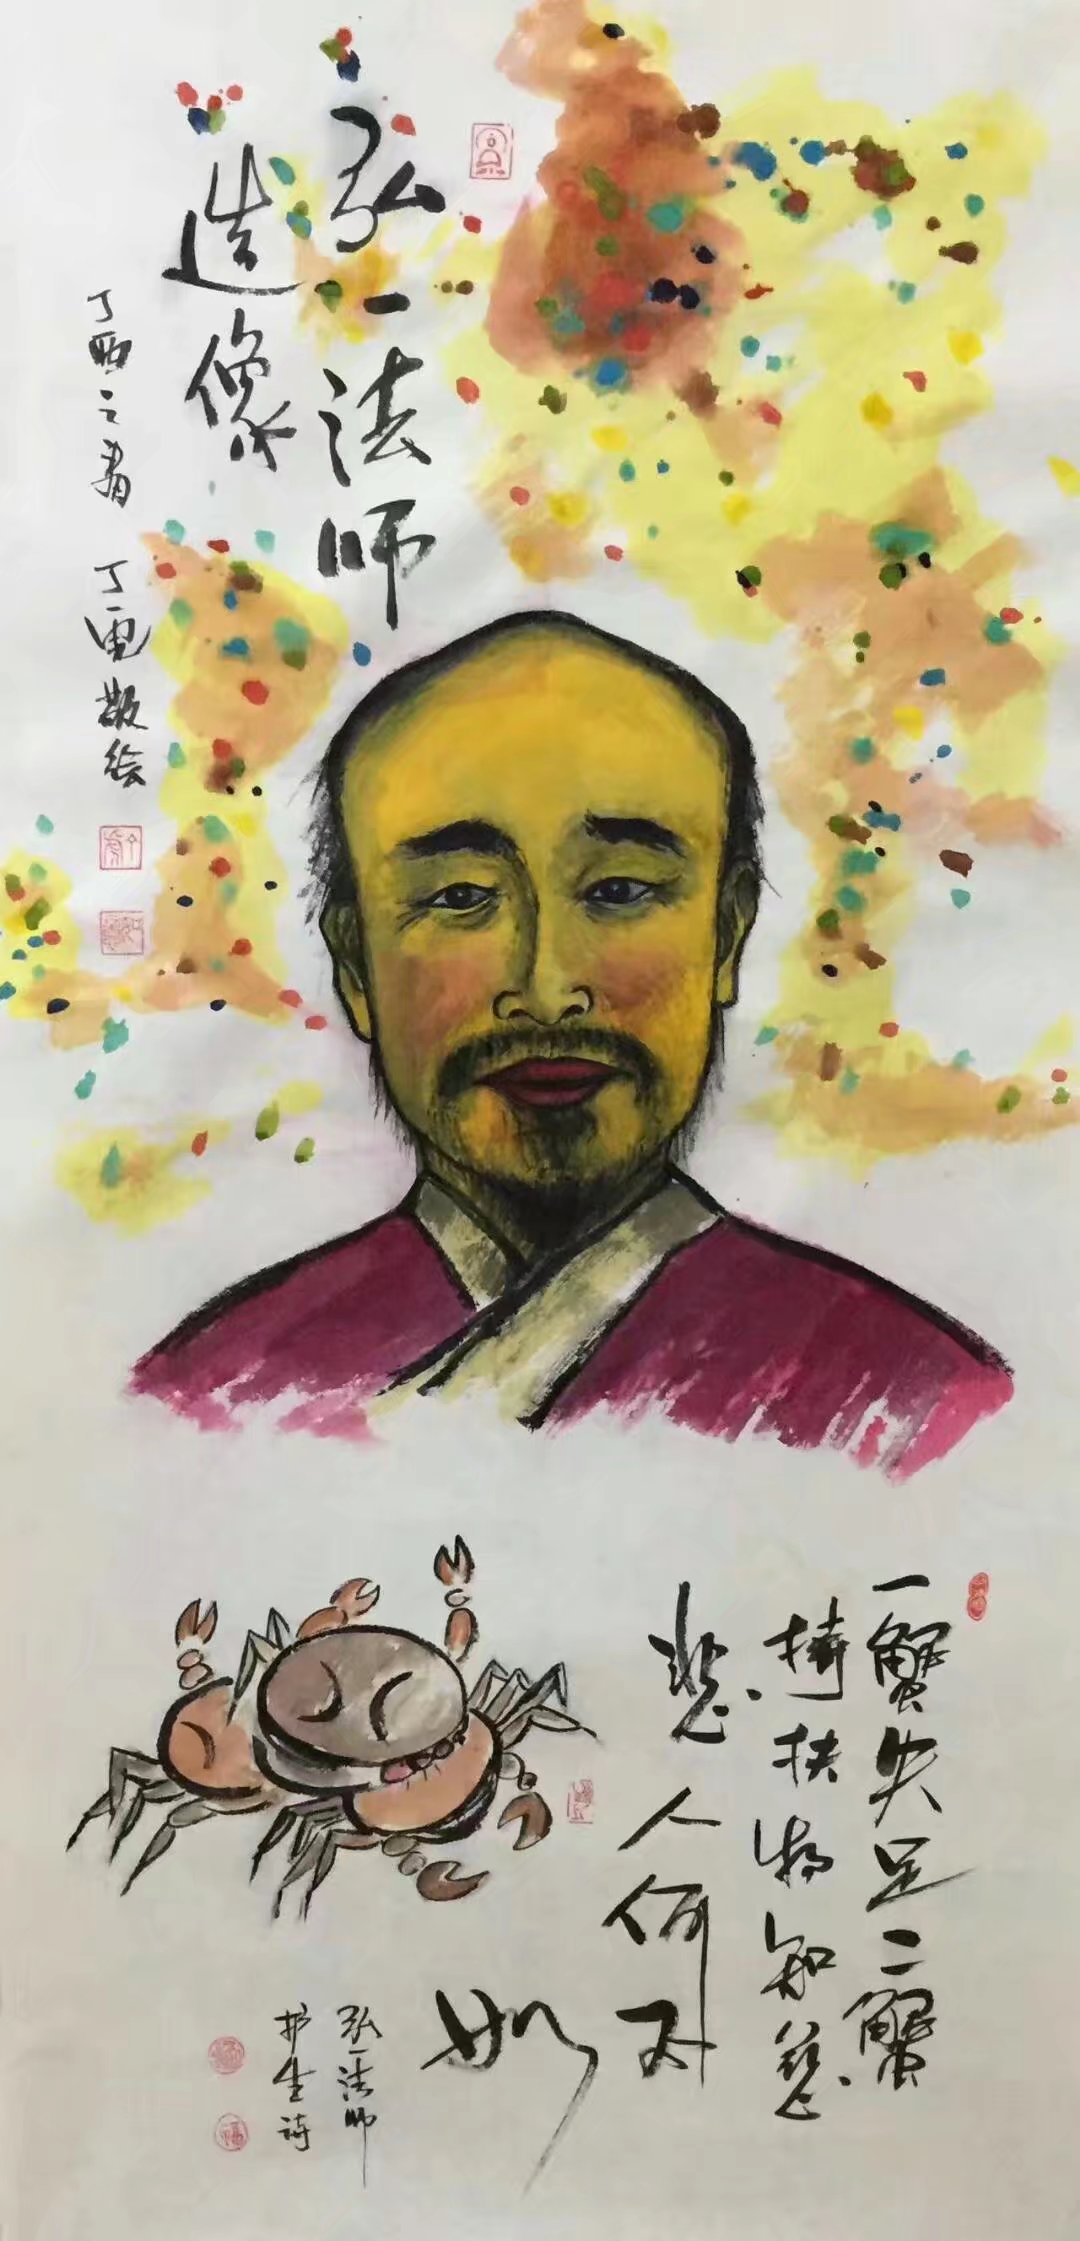 弘一法师
造像
丁酉之
丁一 敬绘
一蟹失足二蟹
扶物知慈
悲人何不
如
弘一法师
护生诗